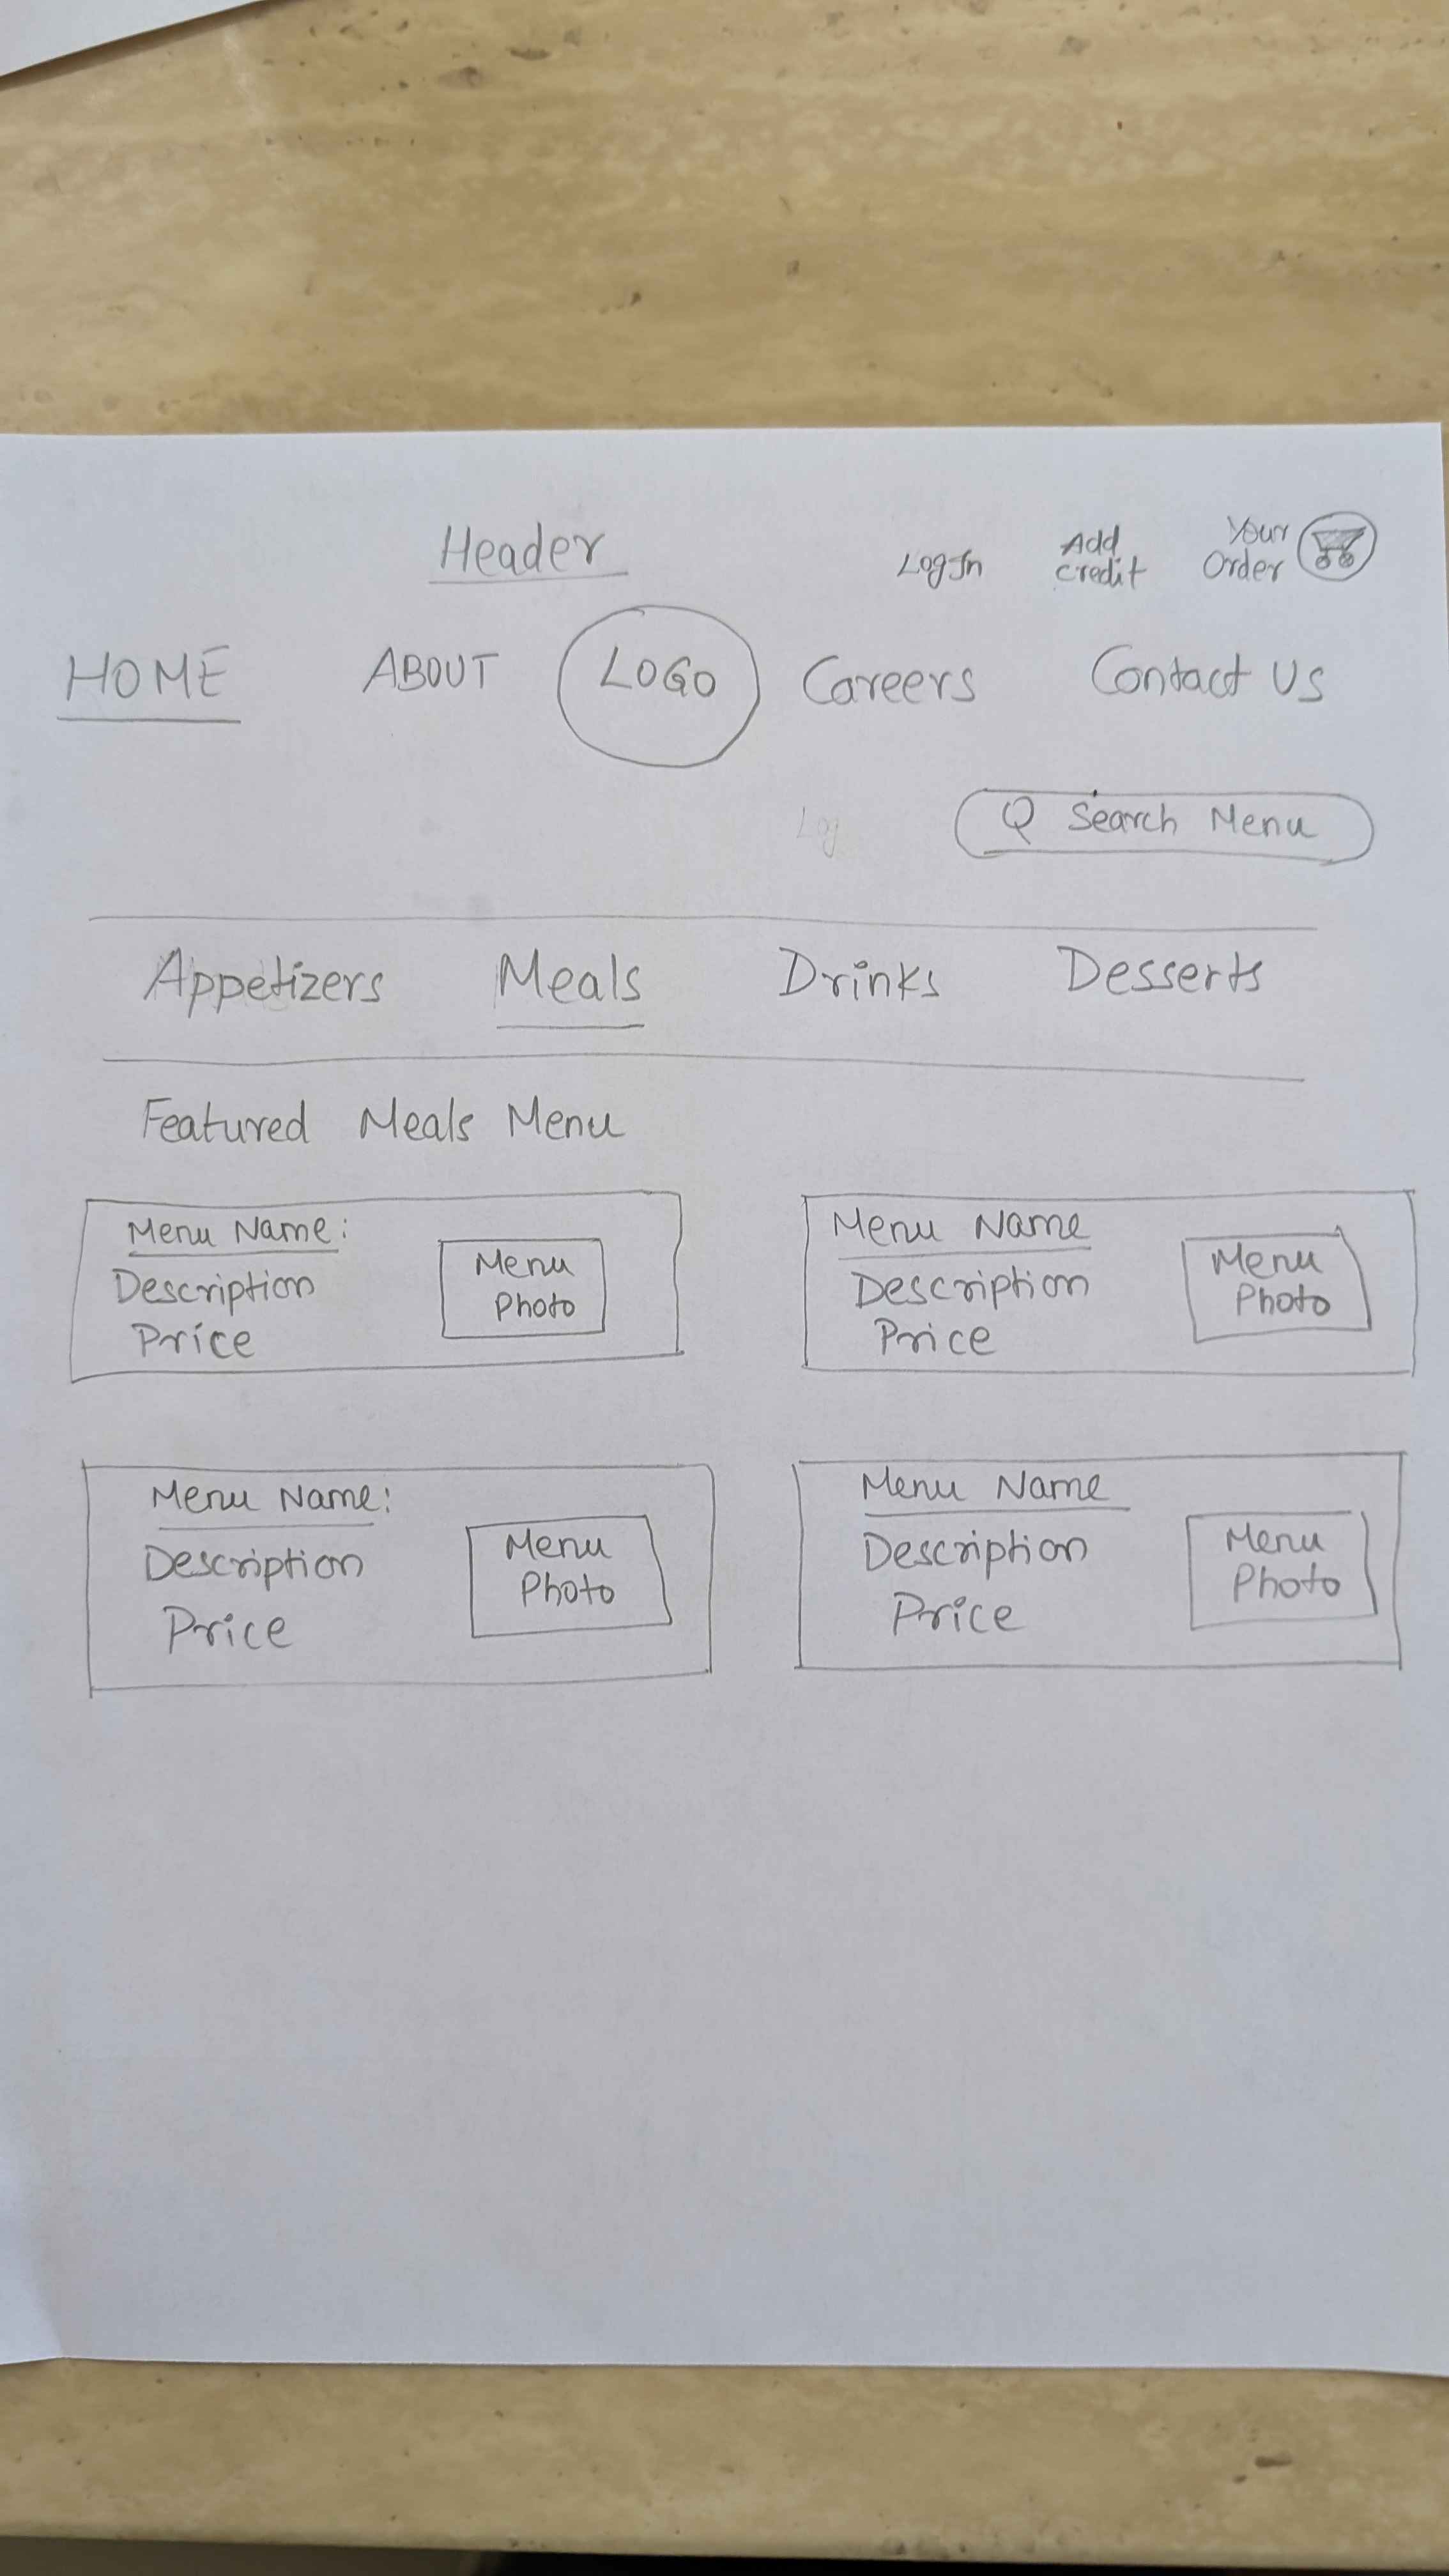 Header
LogIn
Add
credit
Your
Order
HOME ABOUT LOGO Careers Contact Us
Log
Search Menu
Appetizers Meals Drinks Desserts
Featured Meals Menu
Menu Name:
Description
Price
Menu
Photo
Menu Name
Description
Price
Menu
Photo
Menu Name:
Description
Price
Menu
Photo
Menu Name
Description
Price
Menu
Photo